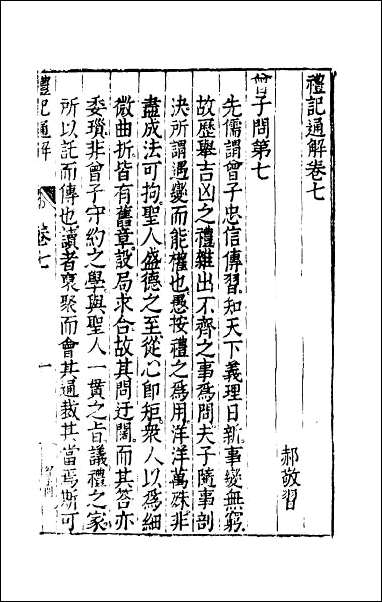 禮記通解卷七
郝敬習
曾子問第七
先儒謂曾子忠信傳習知天下義理日新事變無窮
故歷舉吉凶之禮雜出不齊之事為問夫子隨事剖
決所謂遇變而能權也愚按禮之為用洋洋萬殊非
盡成法可拘聖人盛德之至從心即矩衆人以為細
微曲折皆有舊章設局求合故其問迂闊而其答亦
委瑣非曾子守約之學與聖人一貫之旨議禮之家
所以託而傳也讀者裒聚而會其通裁其當焉斯可
禮記通解
卷七
一